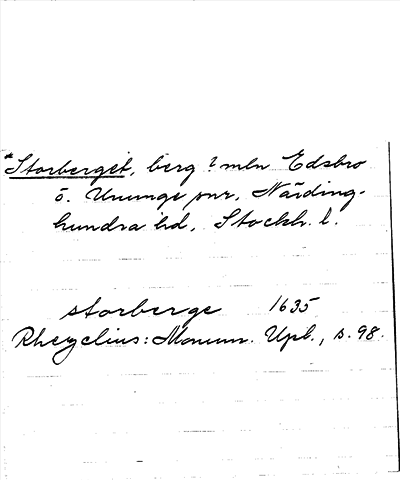 *Storberget, berg? mln Edsbro
o. Ununge pnr, Närding-
hundra hd, Stockh. l.
storberge 1635
Rhezelius: Monum. Upl., s. 98.